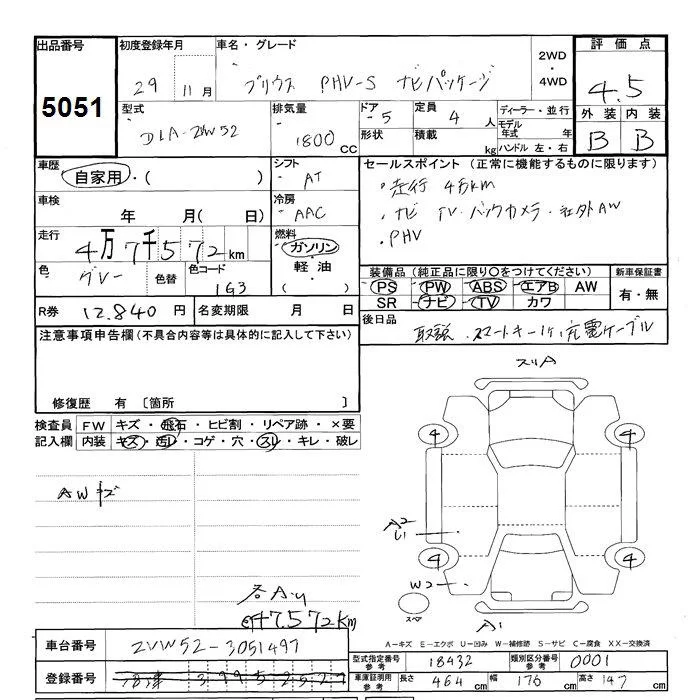 出品番号
5051
初度登録年月
29 11月
車名・グレード
プリウス PHV-S ナビパッケージ
2WD
・
4WD
評価点
4.5
外装 内装
B B
型式
DLA-ZVW52
排気量
1800 CC
ドア
5
形状
定員
4 人
積載
kg
ディーラー・並行
モデル年式 年
ハンドル 左・右
車歴
自家用・( )
シフト
AT
セールスポイント (正常に機能するものに限ります)
・走行 4万km
・ナビ TV・バックカメラ・社外AW
・PHV
車検
年 月( 日)
冷房
AAC
走行
4万7千572km
燃料
ガソリン
・
軽油
・
( )
色
グレー
色替
色コード
1G3
装備品 (純正品に限り○をつけてください)
PS PW ABS エアB AW
SR ナビ TV カワ
新車保証書
有・無
R券 12,840 円
名変期限 月 日
後日品
取説、スマートキー1ケ、充電ケーブル
注意事項申告欄(不具合内容等は具体的に記入して下さい)
修復歴 有 〔箇所 〕
検査員記入欄
FW キズ・飛石・ヒビ割・リペア跡・×要
内装 キズ・汚レ・コゲ・穴・スレ・キレ・破レ
AWキズ
各A.U
47.572km
スリA
4 4
A2
U1
4 4
W2
スペア
A1
A−キズ E−エクボ U−凹み W−補修跡 S−サビ C−腐食 XX−交換済
車台番号
ZVW52-3051497
登録番号
型式指定番号
参考
18432
類別区分番号
参考
0001
車庫証明用
参考
長さ 464 cm
幅 176 cm
高さ 147 cm